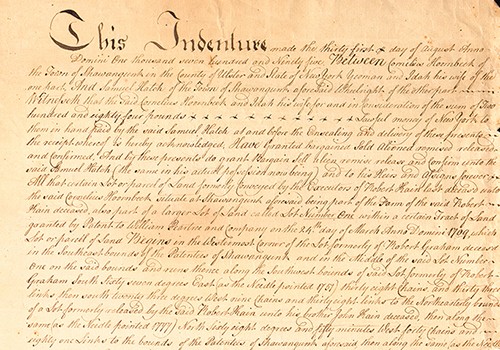 This Indenture made the thirty first day of August Anno
Domini One thousand seven hundred and Ninety five Between Cornelius Hornbeek of
the Town of Shawangunk in the County of Ulster and State of New York Yeoman and Idah his wife of the
one part, And Samuel Hatch of the Town of Shawangunk aforesaid Wheelright of the other part
Witnesseth that the said Cornelius Hornbeek and Idah his wife for and in Consideration of the sum of
hundred and eighty four pounds Lawful money of New York to
them in hand paid by the said Samuel Hatch at and before the Ensealing and delivery of these presents
the receipt whereof is hereby acknowledged, Have Granted bargained Sold Aliened remised released
and Confirmed, And by these presents do grant Bargain Sell alien remise release and Confirm unto the
said Samuel Hatch (the same in his actual possession now being) and to his Heirs and Assigns forever
All that certain Lot or parcel of Land formerly Conveyed by the Executors of Robert Hain deceased unto
the said Cornelius Hornbeek situate at Shawangunk aforesaid being part of the Farm of the said Robert
Hain deceased, also part of a larger Lot of Land called Lot Number One within a certain Tract of Land
granted by Patent to William and Company on the 24th day of March Anno Domini 1709, which
Lot or parcel of Land Begins in the Westermost Corner of the Lot formerly of Robert Graham
in the Southeast bounds of the Patentees of Shawangunk and in the Middle of the said Lot Number
One on the said bounds and runs thence along the Southwest bounds of said Lot formerly of Robert
Graham South Sixty seven degrees East (as the Needle pointed 1753) thirty eight Chains and thirty three
links then South twenty three degrees West nine Chains and thirty eight links to the Northeasterly bounds
of a Lot formerly released by the said Robert Hain unto his brother John Hain deceased, then along the
same (as the Needle pointed 1777) North sixty eight degrees and fifty minutes West forty Chains and
eighty one Links to the bounds of the Patentees of Shawangunk aforesaid then along the same as the